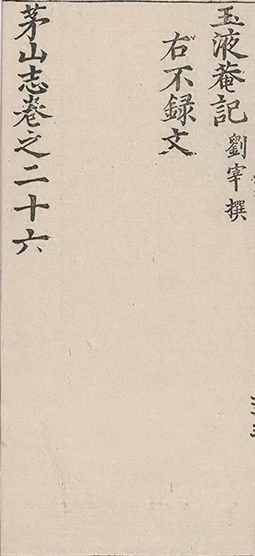 玉液菴記 劉宰撰
右不録文
茅山志卷之二十六